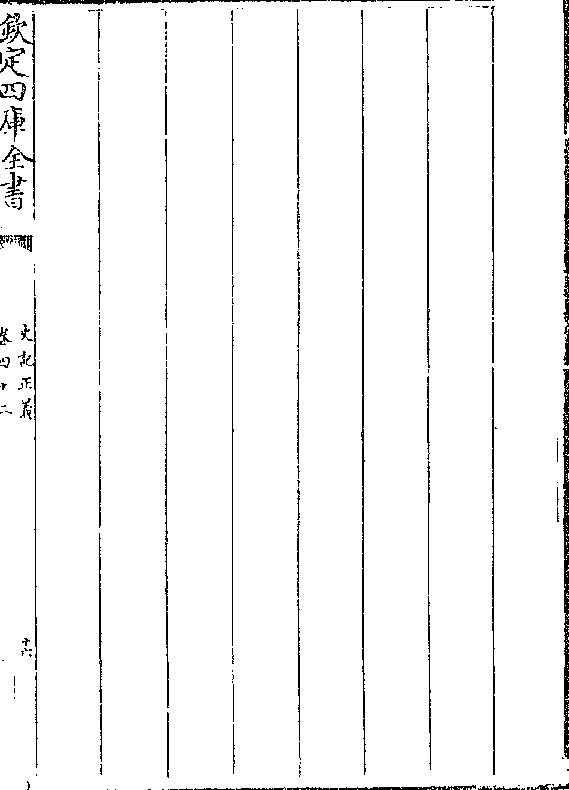 欽定四庫全書
史記正義
卷四十二
十六